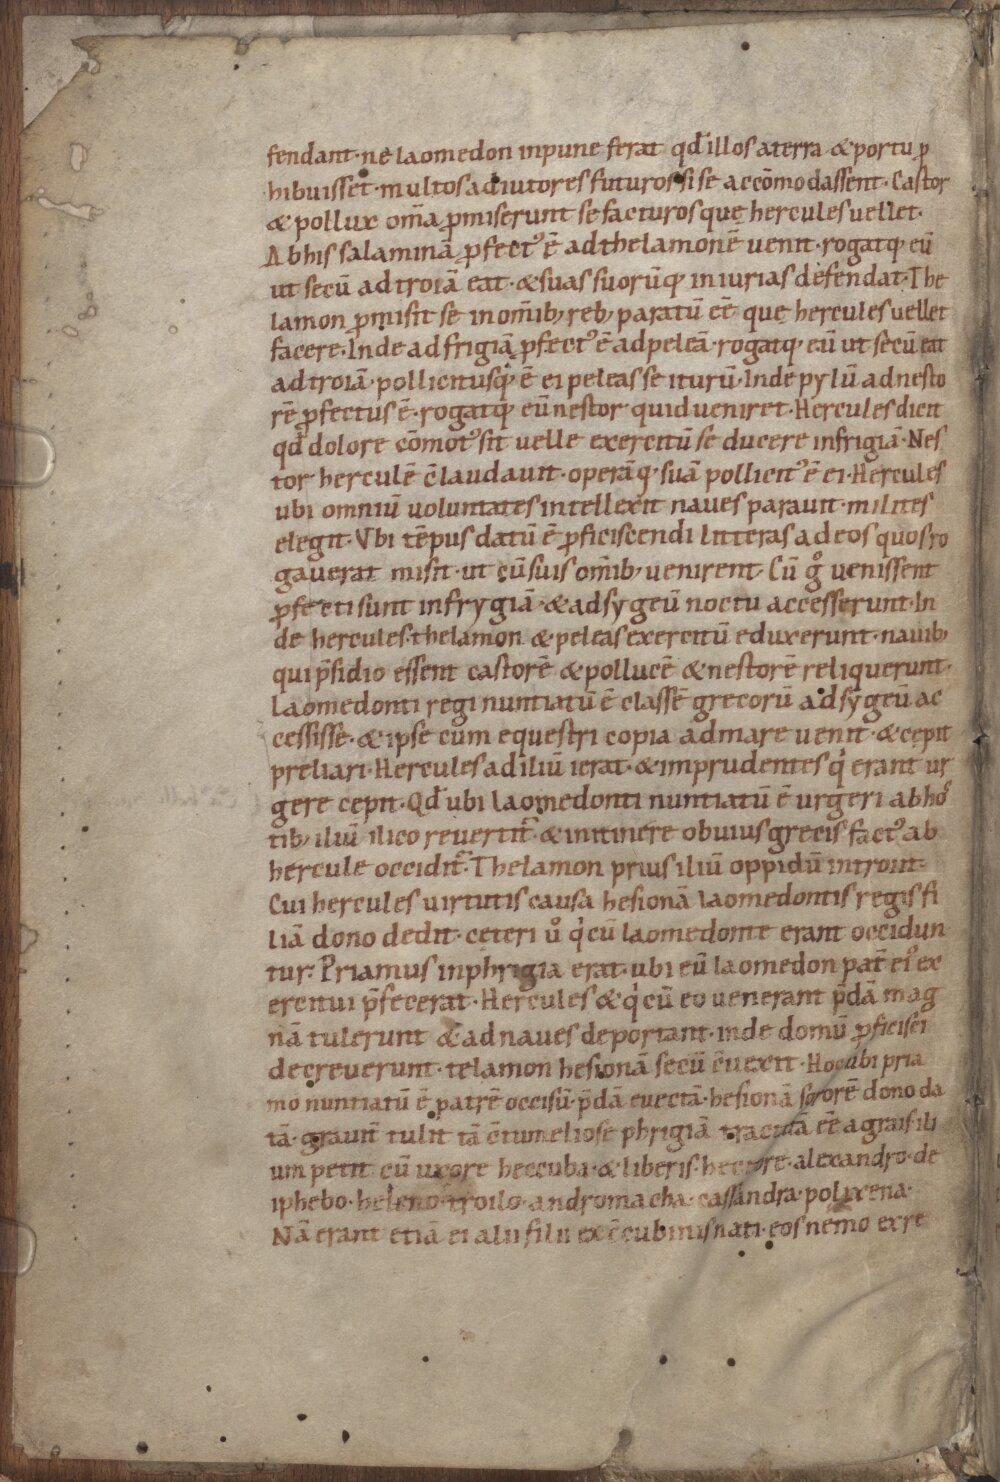 fendant· ne laomedon inpune ferat qđ illos a terra & portu ꝓ
hibuisset· multos adiutores futuros si se accōmodassent· Castor
& pollux om̄a ꝓmiserunt se facturos que hercules uellet·
Ab his salaminā ꝓfect᾿ ē ad thelamonē uenit· rogatq; eū
ut secū ad troiā eat· & suas suorūq; iniurias defendat· The
lamon ꝓmisit se in om̄ib; reb; paratū eē que hercules uellet
facere· Inde ad frigiā ꝓfect᾿ ē ad peleā· rogatq; eū ut secū eat
ad troiā· pollicitusq; ē ei peleas se iturū· Inde pylū ad nesto
rē ꝓfectus ē· rogatq; eū nestor quid ueniret· Hercules dicit
qđ dolore cōmot᾿ sit uelle exercitū se ducere in frigiā· Nes
tor herculē c̄laudauit· operāq; suā pollicit᾿ ē ei· Hercules
ubi omniū uoluntates intellexit naues parauit· milites
elegit· Vbi tēpus datū ē ꝓficiscendi litteras ad eos quos ro
gauerat misit· ut cū suis om̄ib; uenirent· Cū gͦ uenissent
ꝓfecti sunt in frygiā· & ad sygeū noctu accesserunt· In
de hercules· thelamon & peleas exercitū eduxerunt· nauib;
qui p̄sidio essent castorē & pollucē & nestorē reliquerunt·
Laomedonti regi nuntiatū ē classē grecorū ad sygeū ac
cessisse· & ipse cum equestri copia ad mare uenit· & cepit
preliari· Hercules ad iliū ierat· & imprudentes qͥ erant ur
gere cepit· Qđ ubi laomedonti nuntiatū ē urgeri ab hos
tib; iliū ilico reuertit᷑· & in itinere obuius grecis fact᾿ ab
hercule occidit᷑· Thelamon prius iliū oppidū introiit·
Cui hercules uirtutis causa hesionā laomedontis regis fi
liā dono dedit· ceteri uͦ qͥ cū laomedonte erant occidun
tur· Priamus in phrigia erat· ubi eū laomedon pat̄ ei᾿ ex
ercitui p̄fecerat· Hercules & qͥ cū eo uenerant p̄dā mag
nā tulerunt & ad naues deportant· inde domū ꝓficisci
decreuerunt· telamon hesionā secū c̄uexit· Hoc ubi pria
mo nuntiatū ē patrē occisū· p̄dā euectā· hesionā sororē dono da
tā· grauit̄ tulit tā c̄tumeliose phrigiā tractatā eē a grais· ili
um petit cū uxore heccuba· & liberis· hectore· alexandro· de
iphebo· heleno· troilo· andromacha· cassandra· polixena·
Nā erant etiā ei alii filii ex c̄cubinis nati· eos nemo ex re